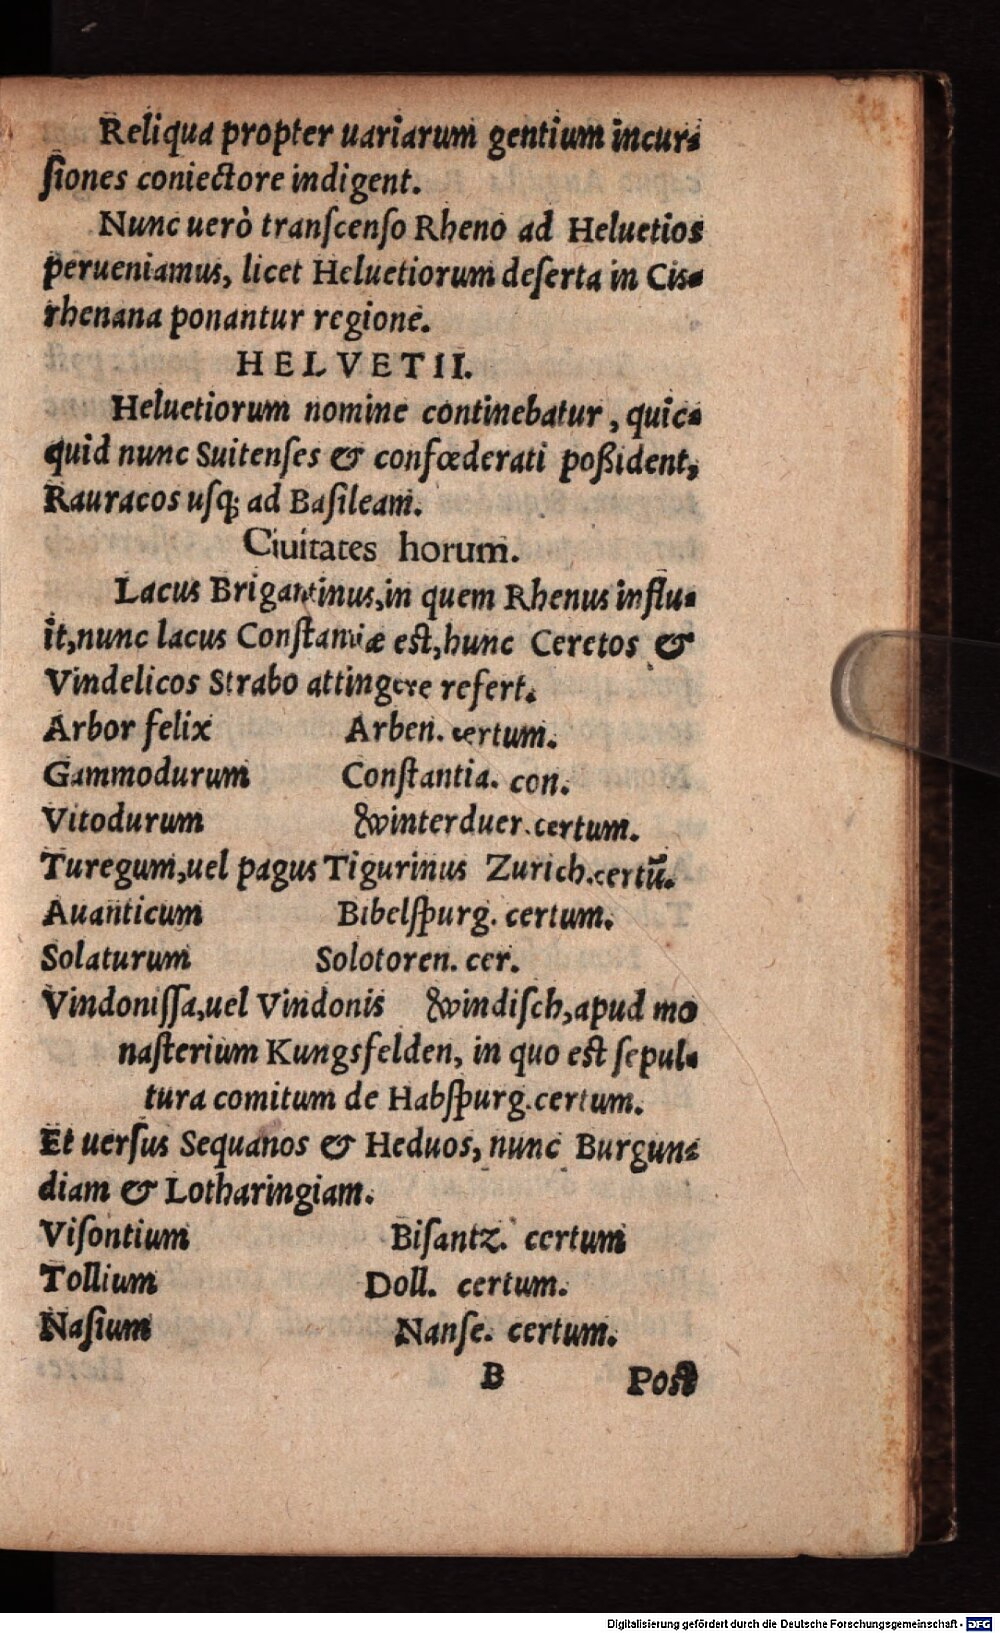 Reliqua propter uariarum gentium incur-
ſiones coniectore indigent.
Nunc uerò tranſcenſo Rheno ad Heluetios
perueniamus, licet Heluetiorum deſerta in Cis-
rhenana ponantur regione.
HELVETII.
Heluetiorum nomine continebatur, quic-
quid nunc Suitenſes & confœderati poßident,
Rauracos uſq; ad Baſileam.
Ciuitates horum.
Lacus Brigantinus,in quem Rhenus influ-
it,nunc lacus Conſtantiæ est,hunc Ceretos &
Vindelicos Strabo attingere refert.
Arbor felix Arben. certum.
Gammodurum Conſtantia. con.
Vitodurum Winterduer.certum.
Turegum,uel pagus Tigurinus Zurich.certū.
Auanticum Bibelſpurg. certum.
Solaturum Solotoren. cer.
Vindoniſſa,uel Vindonis Windiſch,apud mo
naſterium Kungsfelden, in quo est ſepul-
tura comitum de Habſpurg.certum.
Et uerſus Sequanos & Heduos, nunc Burgun-
diam & Lotharingiam.
Viſontium Biſantz. certum
Tollium Doll. certum.
Naſium Nanſe. certum.
B Post
Digitalisierung gefördert durch die Deutsche Forschungsgemeinschaft - DFG